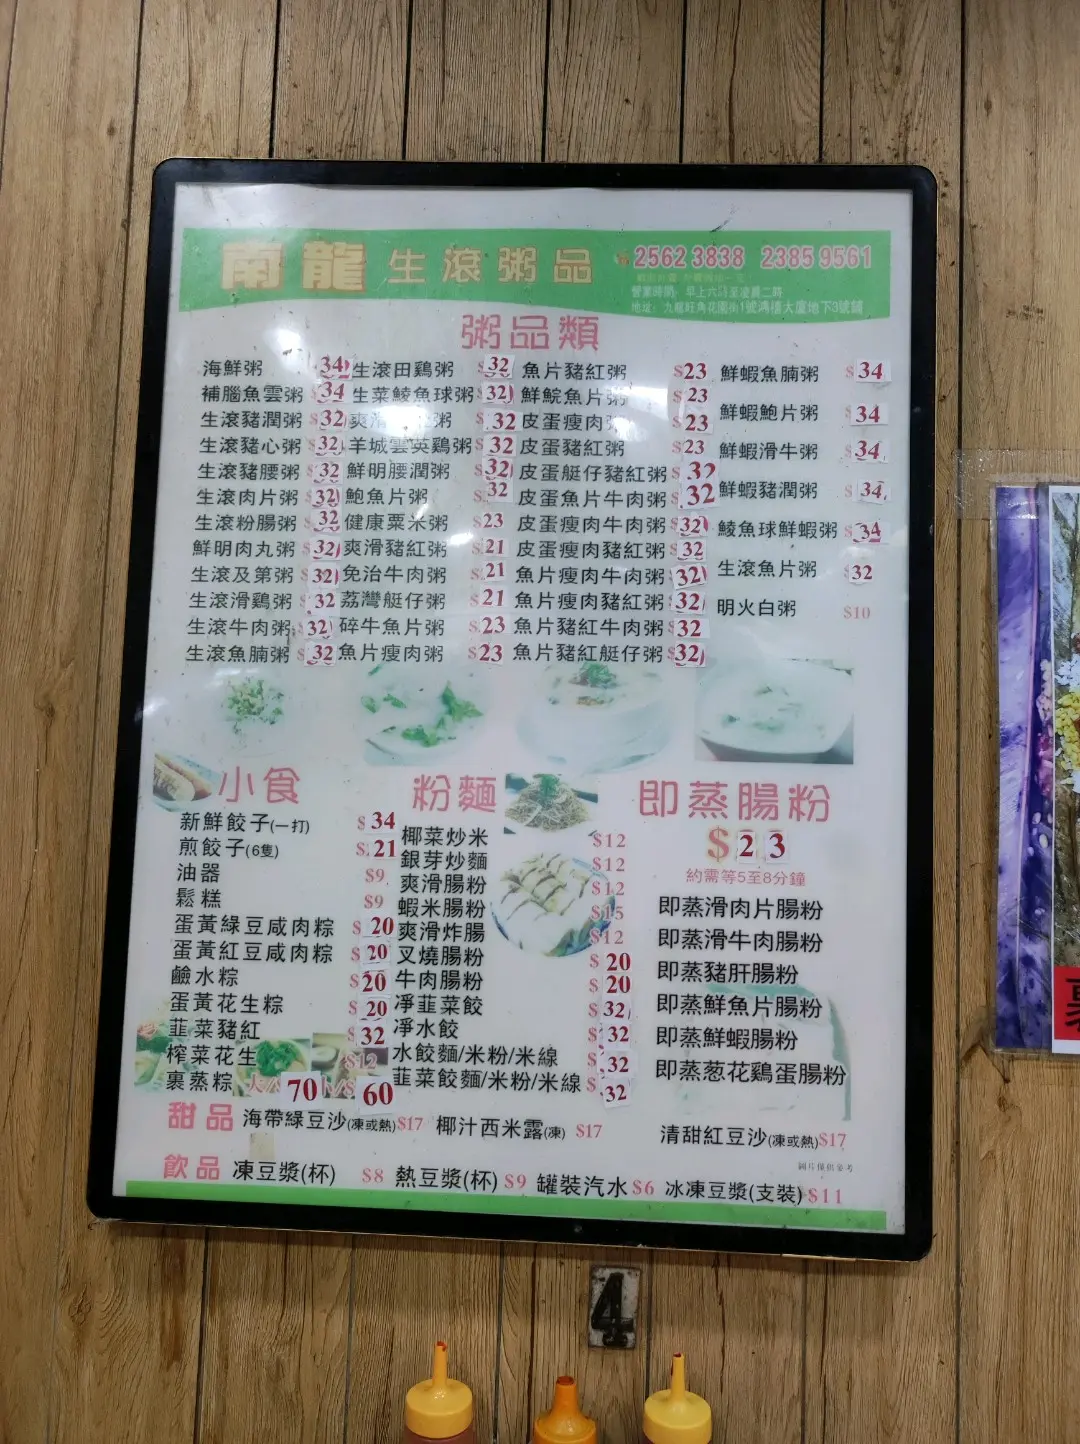 南龍 生滾粥品
2562 3838 2385 9561
營業時間：早上六時至凌晨二時
地址：九龍旺角花園街1號鴻禧大廈地下3號鋪
粥品類
海鮮粥 $34
補腦魚雲粥 $34
生滾豬潤粥 $32
生滾豬心粥 $32
生滾豬腰粥 $32
生滾肉片粥 $32
生滾粉腸粥 $32
鮮明肉丸粥 $32
生滾及第粥 $32
生滾滑鷄粥 $32
生滾牛肉粥 $32
生滾魚腩粥 $32
生滾田鷄粥 $32
生菜鯪魚球粥 $32
爽滑 粥 $32
羊城雲英鷄粥 $32
鮮明腰潤粥 $32
鮑魚片粥 $32
健康粟米粥 $23
爽滑豬紅粥 $21
免治牛肉粥 $21
荔灣艇仔粥 $21
碎牛魚片粥 $23
魚片瘦肉粥 $23
魚片豬紅粥 $23
鮮鯇魚片粥 $23
皮蛋瘦肉粥 $23
皮蛋豬紅粥 $23
皮蛋艇仔豬紅粥 $32
皮蛋魚片牛肉粥 $32
皮蛋瘦肉牛肉粥 $32
皮蛋瘦肉豬紅粥 $32
魚片瘦肉牛肉粥 $32
魚片瘦肉豬紅粥 $32
魚片豬紅牛肉粥 $32
魚片豬紅艇仔粥 $32
鮮蝦魚腩粥 $34
鮮蝦鮑片粥 $34
鮮蝦滑牛粥 $34
鮮蝦豬潤粥 $34
鯪魚球鮮蝦粥 $34
生滾魚片粥 $32
明火白粥 $10
小食
新鮮餃子(一打) $34
煎餃子(6隻) $21
油器 $9
鬆糕 $9
蛋黃綠豆咸肉粽 $20
蛋黃紅豆咸肉粽 $20
鹼水粽 $20
蛋黃花生粽 $20
韮菜豬紅 $32
榨菜花生 $12
裹蒸粽 大/ 70 / $ 60
粉麵
椰菜炒米 $12
銀芽炒麵 $12
爽滑腸粉 $12
蝦米腸粉 $15
爽滑炸腸 $12
叉燒腸粉 $20
牛肉腸粉 $20
凈韮菜餃 $32
凈水餃 $32
水餃麵/米粉/米線 $32
韮菜餃麵/米粉/米線 $32
即蒸腸粉
$23
約需等5至8分鐘
即蒸滑肉片腸粉
即蒸滑牛肉腸粉
即蒸豬肝腸粉
即蒸鮮魚片腸粉
即蒸鮮蝦腸粉
即蒸葱花鷄蛋腸粉
甜品 海帶綠豆沙(凍或熱) $17 椰汁西米露(凍) $17 清甜紅豆沙(凍或熱) $17
圖片僅供參考
飲品 凍豆漿(杯) $8 熱豆漿(杯) $9 罐裝汽水 $6 冰凍豆漿(支裝) $11
4